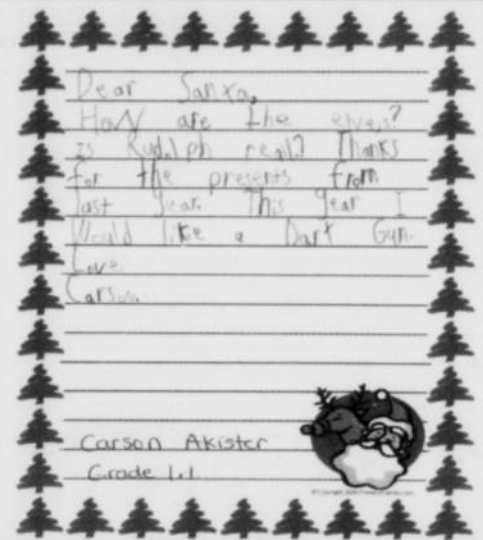 Dear Santa,
How are the elves?
Is Rudolph real? Thanks
for the presents from
last year. This year I
Would like a Dart Gun.
Love
Carson.
Carson Akister
Grade 1.1.